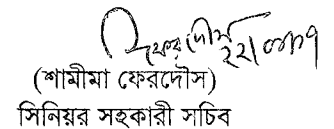 (শামীমা ফেরদৌস)
সিনিয়র সহকারী সচিব